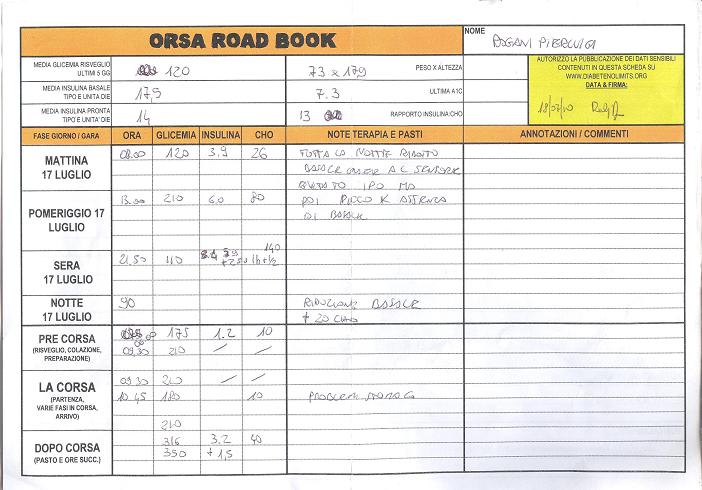 ORSA ROAD BOOK
NOME
PIERLUIGI
MEDIA GLICEMIA RISVEGLIO
ULTIMI 5 GG
120
73 x 179
PESO X ALTEZZA
MEDIA INSULINA BASALE
TIPO E UNITA DIE
17,5
7.3
ULTIMA A1C
MEDIA INSULINA PRONTA
TIPO E UNITA' DIE
14
13
RAPPORTO INSULINA:CHO
AUTORIZZO LA PUBBLICAZIONE DEI DATI SENSIBILI
CONTENUTI IN QUESTA SCHEDA SU
WWW.DIABETENOLIMITS.ORG
DATA & FIRMA:
18/07/10
FASE GIORNO / GARA ORA GLICEMIA INSULINA CHO NOTE TERAPIA E PASTI ANNOTAZIONI / COMMENTI
MATTINA
17 LUGLIO
08.00 120 3.9 26 TUTTA LA NOTTE RIDOTTO
BASALE AL SENSORE
EVITATO IPO MA
POMERIGGIO 17
LUGLIO
13.00 210 6.0 80 POI PICCO X ASSENZA
DI BASALE
SERA
17 LUGLIO
21.50 110 140
NOTTE
17 LUGLIO
90 RIDUZIONE BASALE
+ 20 CHO
PRE CORSA
(RISVEGLIO, COLAZIONE,
PREPARAZIONE)
175 1.2 10
09.30 210 / /
LA CORSA
(PARTENZA,
VARIE FASI IN CORSA,
ARRIVO)
09.30 210 / /
10.45 180 10 PROBLEMI
210
DOPO CORSA
(PASTO E ORE SUCC.)
316 3.2 40
350 + 1,5